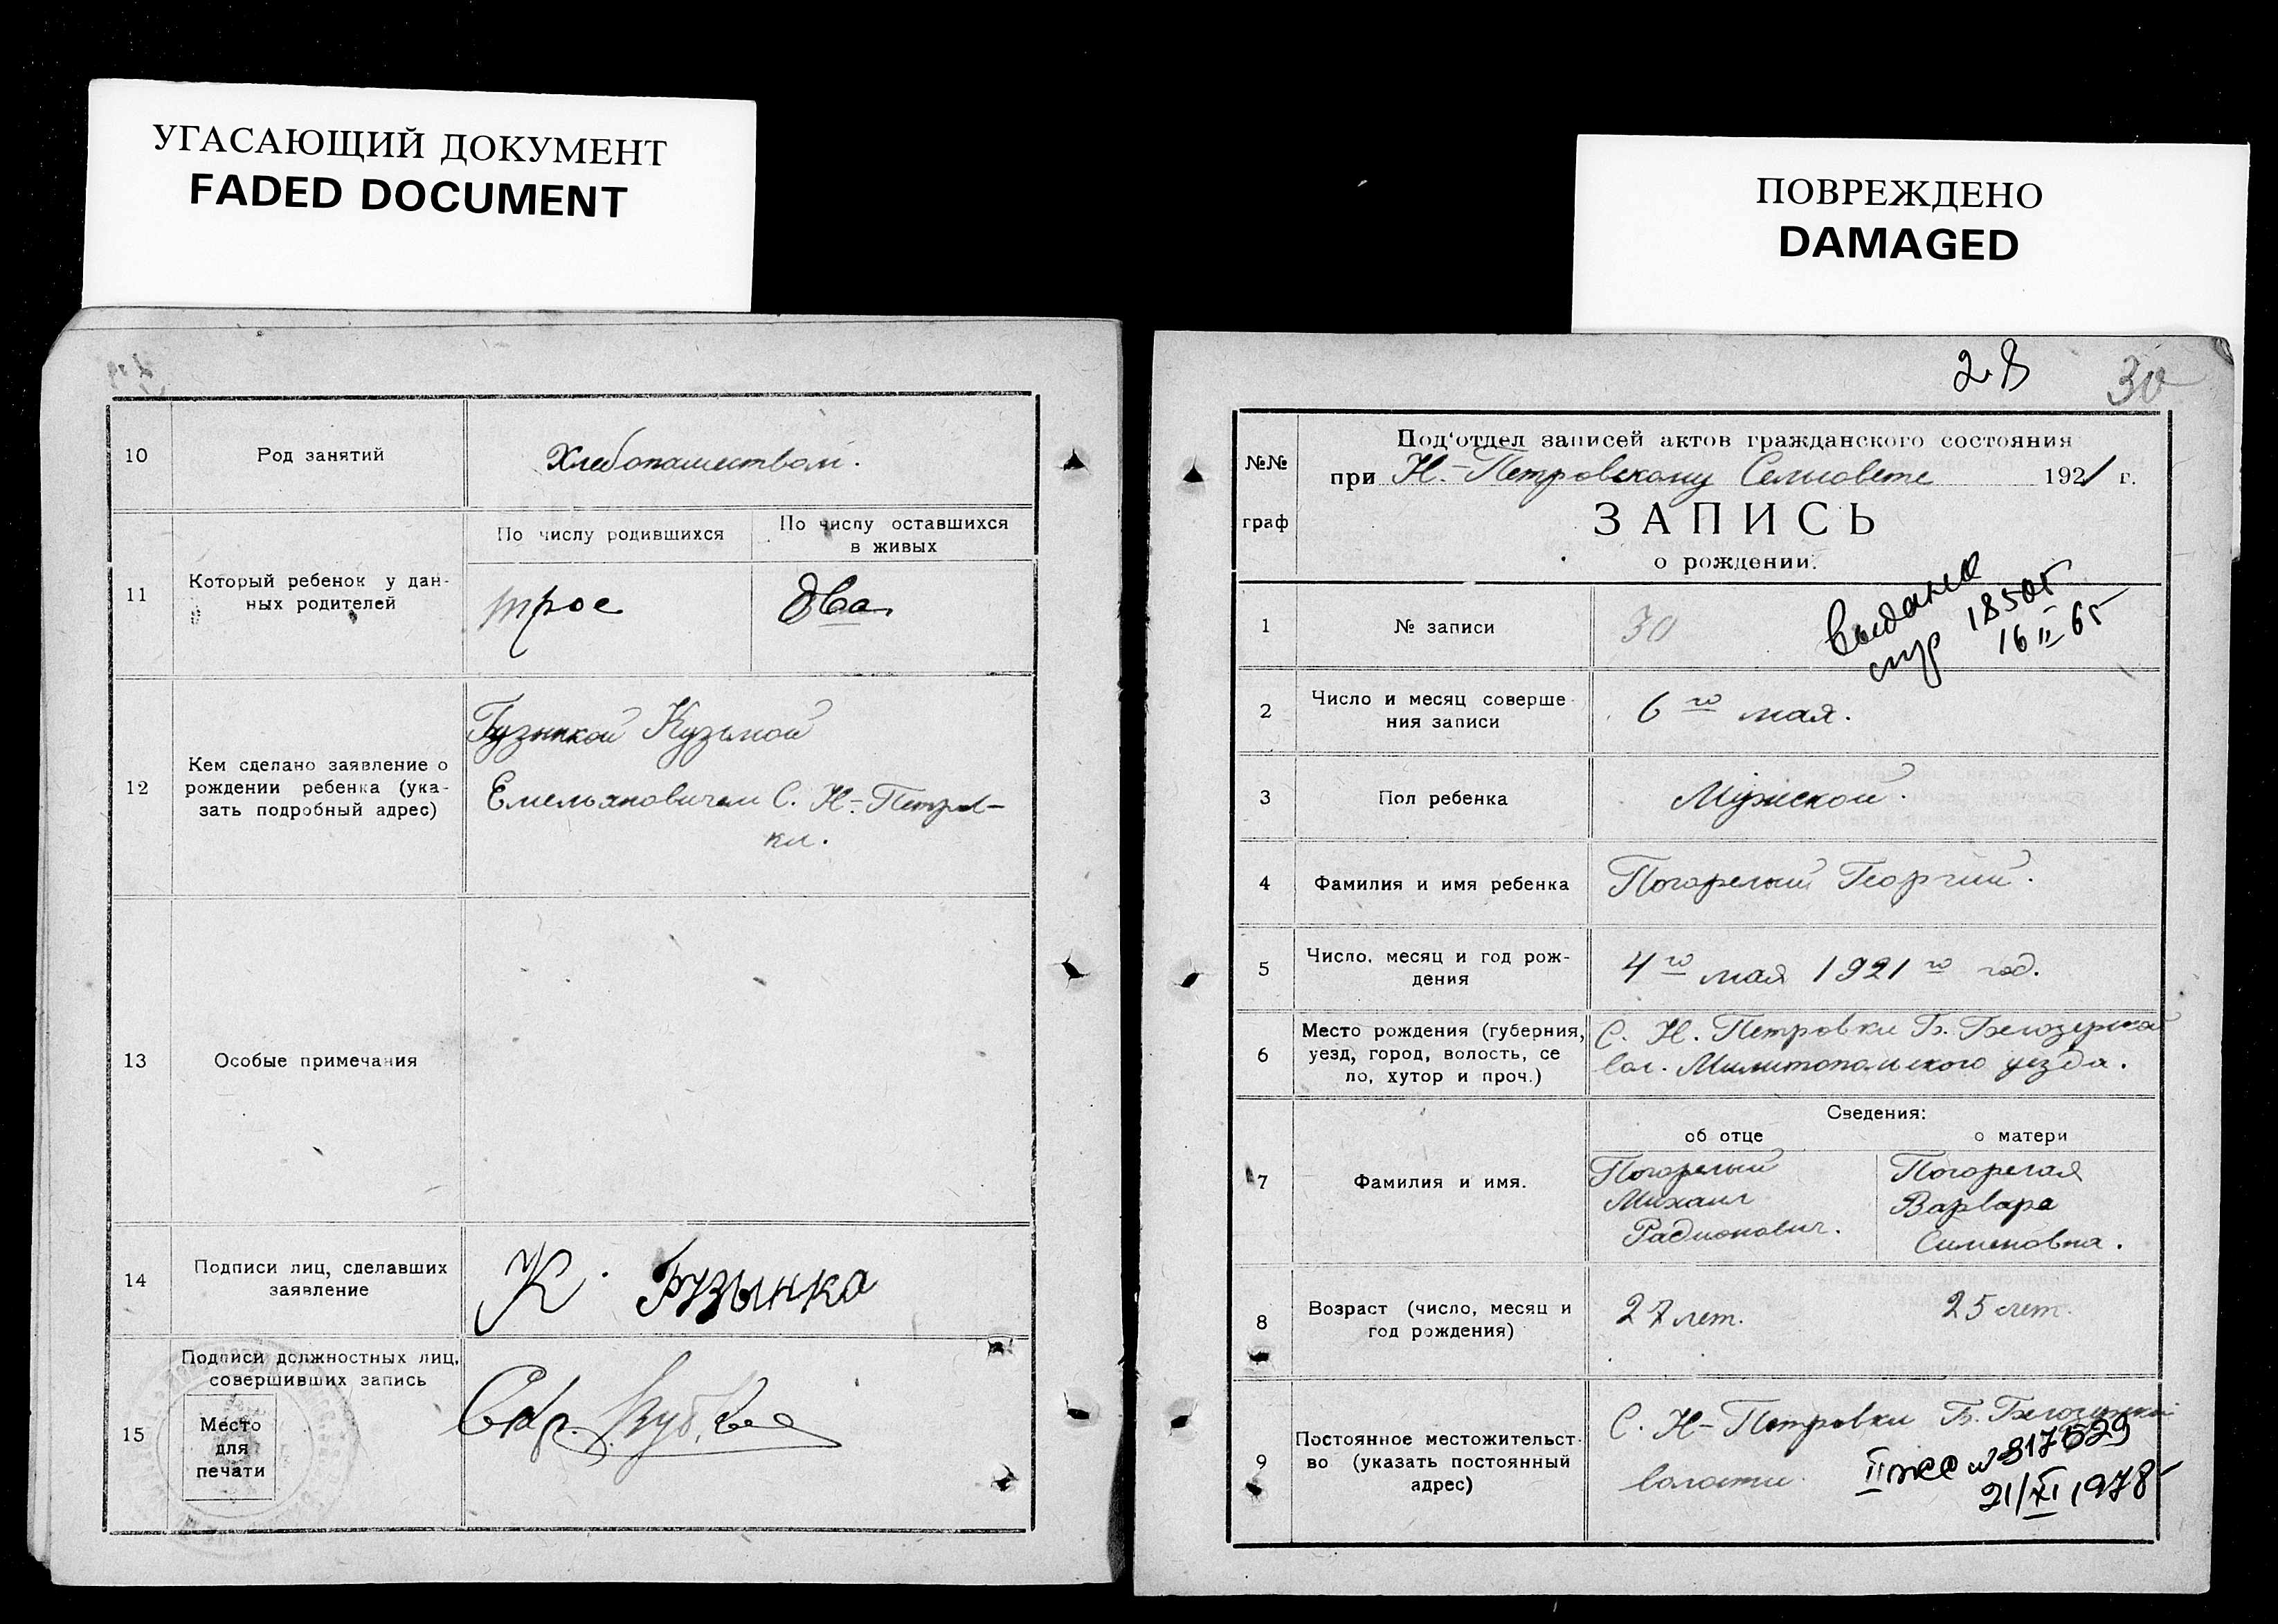 УГАСАЮЩИЙ ДОКУМЕНТ
FADED DOCUMENT
10
Род занятий
Хлебопашеством.
11
Который ребенок у дан-
ных родителей
По числу родившихся
По числу оставшихся
в живых
трое
два
12
Кем сделано заявление о
рождении ребенка (ука-
зать подробный адрес)
Гузинкой Кузьмой
Емельяновичем С. Н-Петров-
ки.
13
Особые примечания
14
Подписи лиц, сделавших
заявление
К. Гузынка
15
Подписи должностных лиц,
совершивших запись
Место
для
печати
ПОВРЕЖДЕНО
DAMAGED
28
30
№№
граф
Под‘отдел записей актов гражданского состояния
при Н.-Петровскому Сельсовете 1921 г.
ЗАПИСЬ
о рождении.
1
№ записи
30
выдано
1850г
16 II 65
2
Число и месяц соверше-
ния записи
6го мая.
3
Пол ребенка
Мужской.
4
Фамилия и имя ребенка
Погорелый Георгий.
5
Число, месяц и год рож-
дения
4го мая 1921го год.
6
Место рождения (губерния,
уезд, город, волость, се
ло, хутор и проч.)
С. Н. Петровки Б. Белозерской
вол. Милитопольского уезда.
Сведения:
об отце
о матери
7
Фамилия и имя.
Погорелый
Михаил
Радионович.
Погорелая
Варвара
Сименовна.
8
Возраст (число, месяц и
год рождения)
27 лет.
25 лет.
9
Постоянное местожительст-
во (указать постоянный
адрес)
С. Н-Петровки Б. Белозерской
волости
21/XI 1978